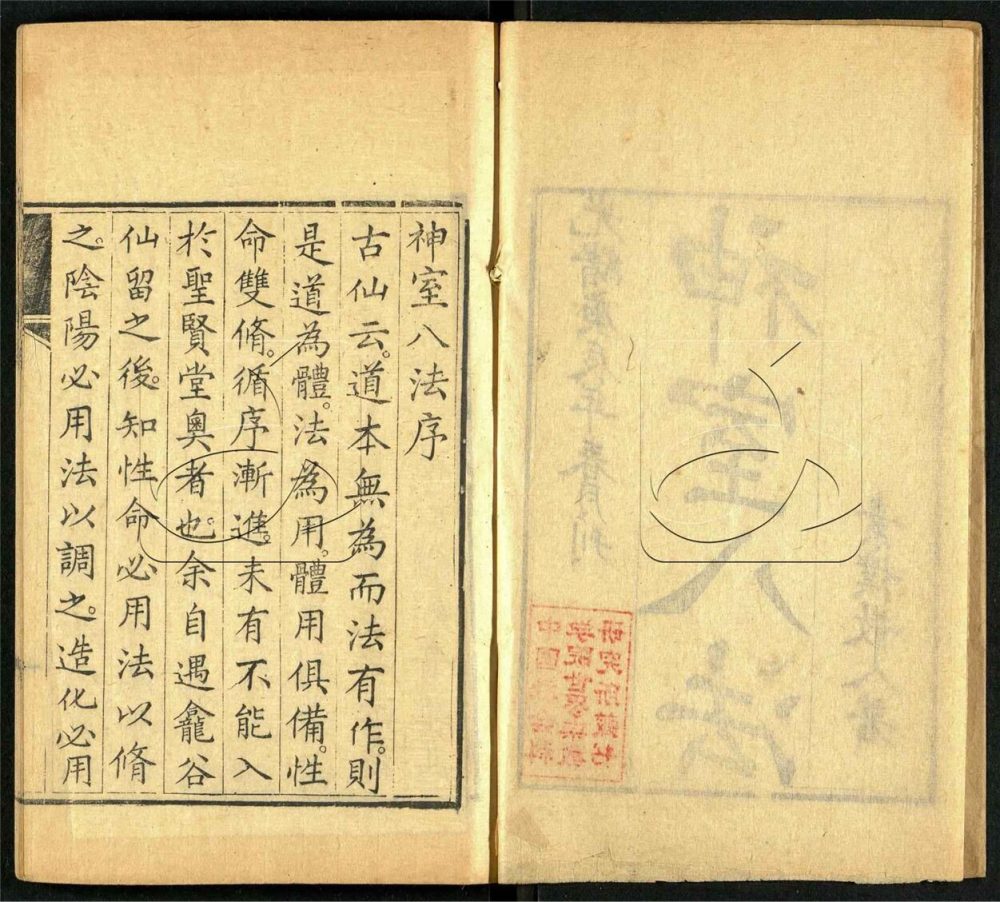 神室八法
神室八法序
古仙云。道本無為而法有作。則
是道為體。法為用。體用俱備。性
命雙脩。循序漸進。未有不能入
於聖賢堂奧者也。余自遇龕谷
仙留之後。知性命必用法以脩
之。陰陽必用法以調之。造化必用